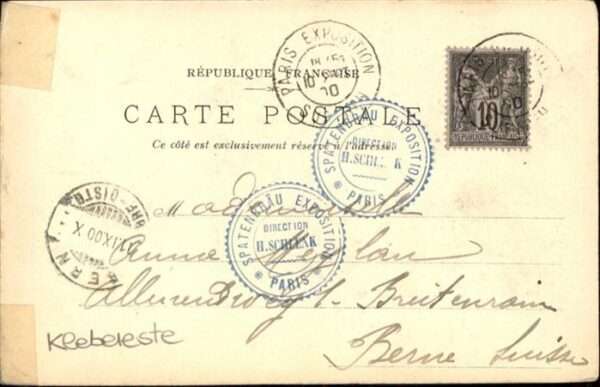 PARIS EXPOSITION
10
00
RÉPUBLIQUE FRANÇAISE
CARTE POSTALE
Ce côté est exclusivement réservé à l'adresse.
10
REPUBLIQUE FRANÇAISE
SPATENBRÄU EXPOSITION
DIRECTION
H. SCHLENK
* PARIS *
SPATENBRÄU EXPOSITION
DIRECTION
H. SCHLENK
* PARIS *
BERN
IX.00 X
Mademoiselle
Anna
Breitenrain
Berne Suisse
Klebereste